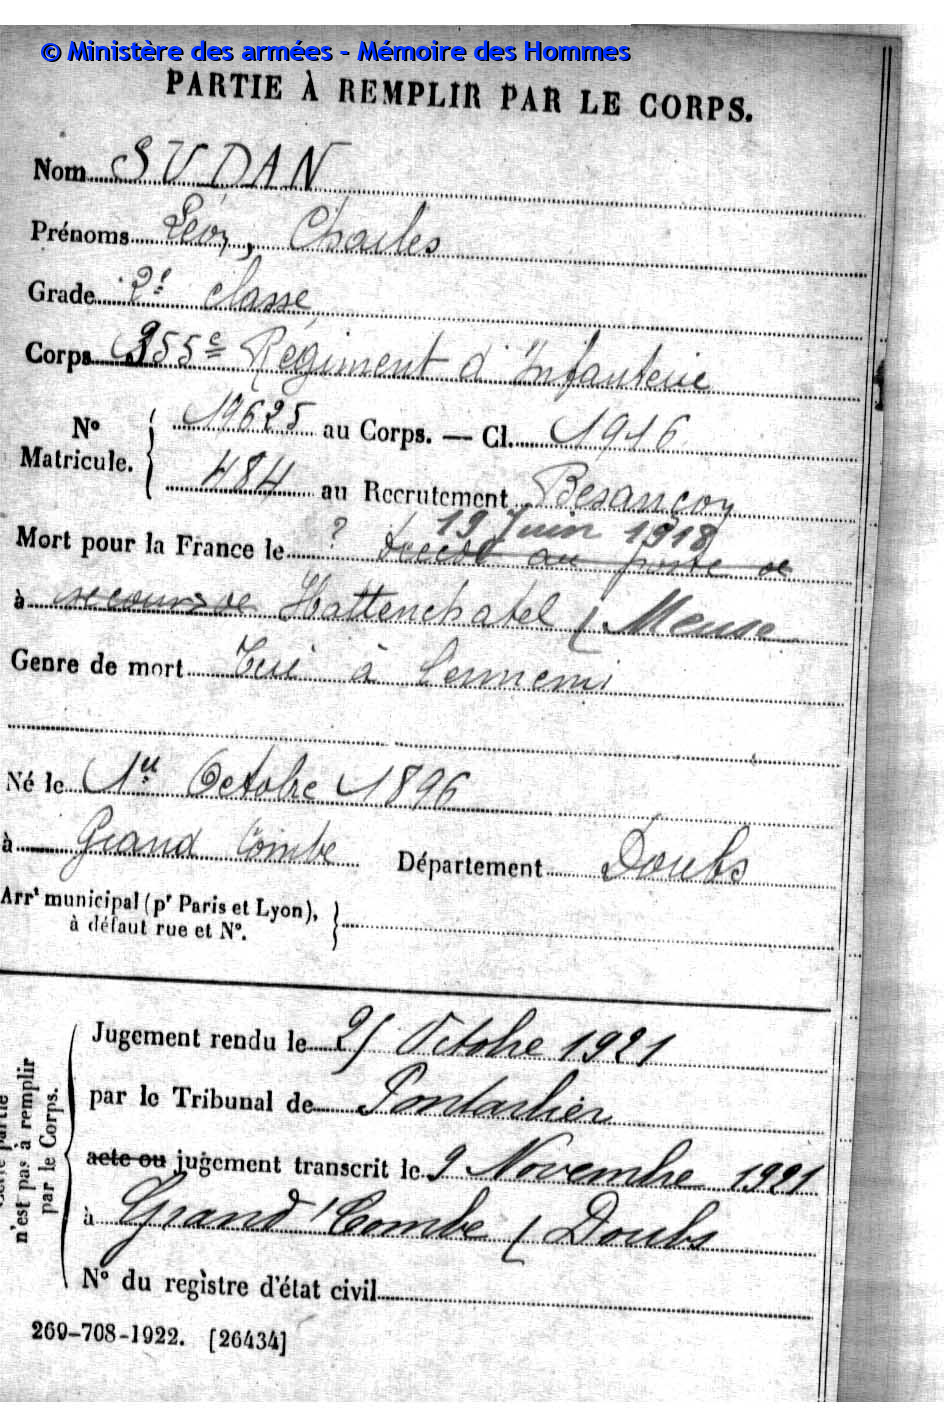 © Ministère des armées - Mémoire des Hommes
PARTIE À REMPLIR PAR LE CORPS.
Nom SUDAN
Prénoms Léon, Charles
Grade 2e classe
Corps 355e Régiment d'Infanterie
No Matricule. 19625 au Corps. — Cl. 1916
484 au Recrutement Besançon
19 Juin 1918
Mort pour la France le ? décédé au poste de
à secours de Hattenchatel / Meuse
Genre de mort Tué à l'ennemi
Né le 1er Octobre 1896
à Grand Combe Département Doubs
Arrt municipal (pr Paris et Lyon),
à défaut rue et No.
Jugement rendu le Octobre 1921
par le Tribunal de Pontarlier
acte ou jugement transcrit le 9 Novembre 1921
à Grand'Combe / Doubs
No du registre d'état civil
n'est pas à remplir
par le Corps.
269-708-1922. [26434]